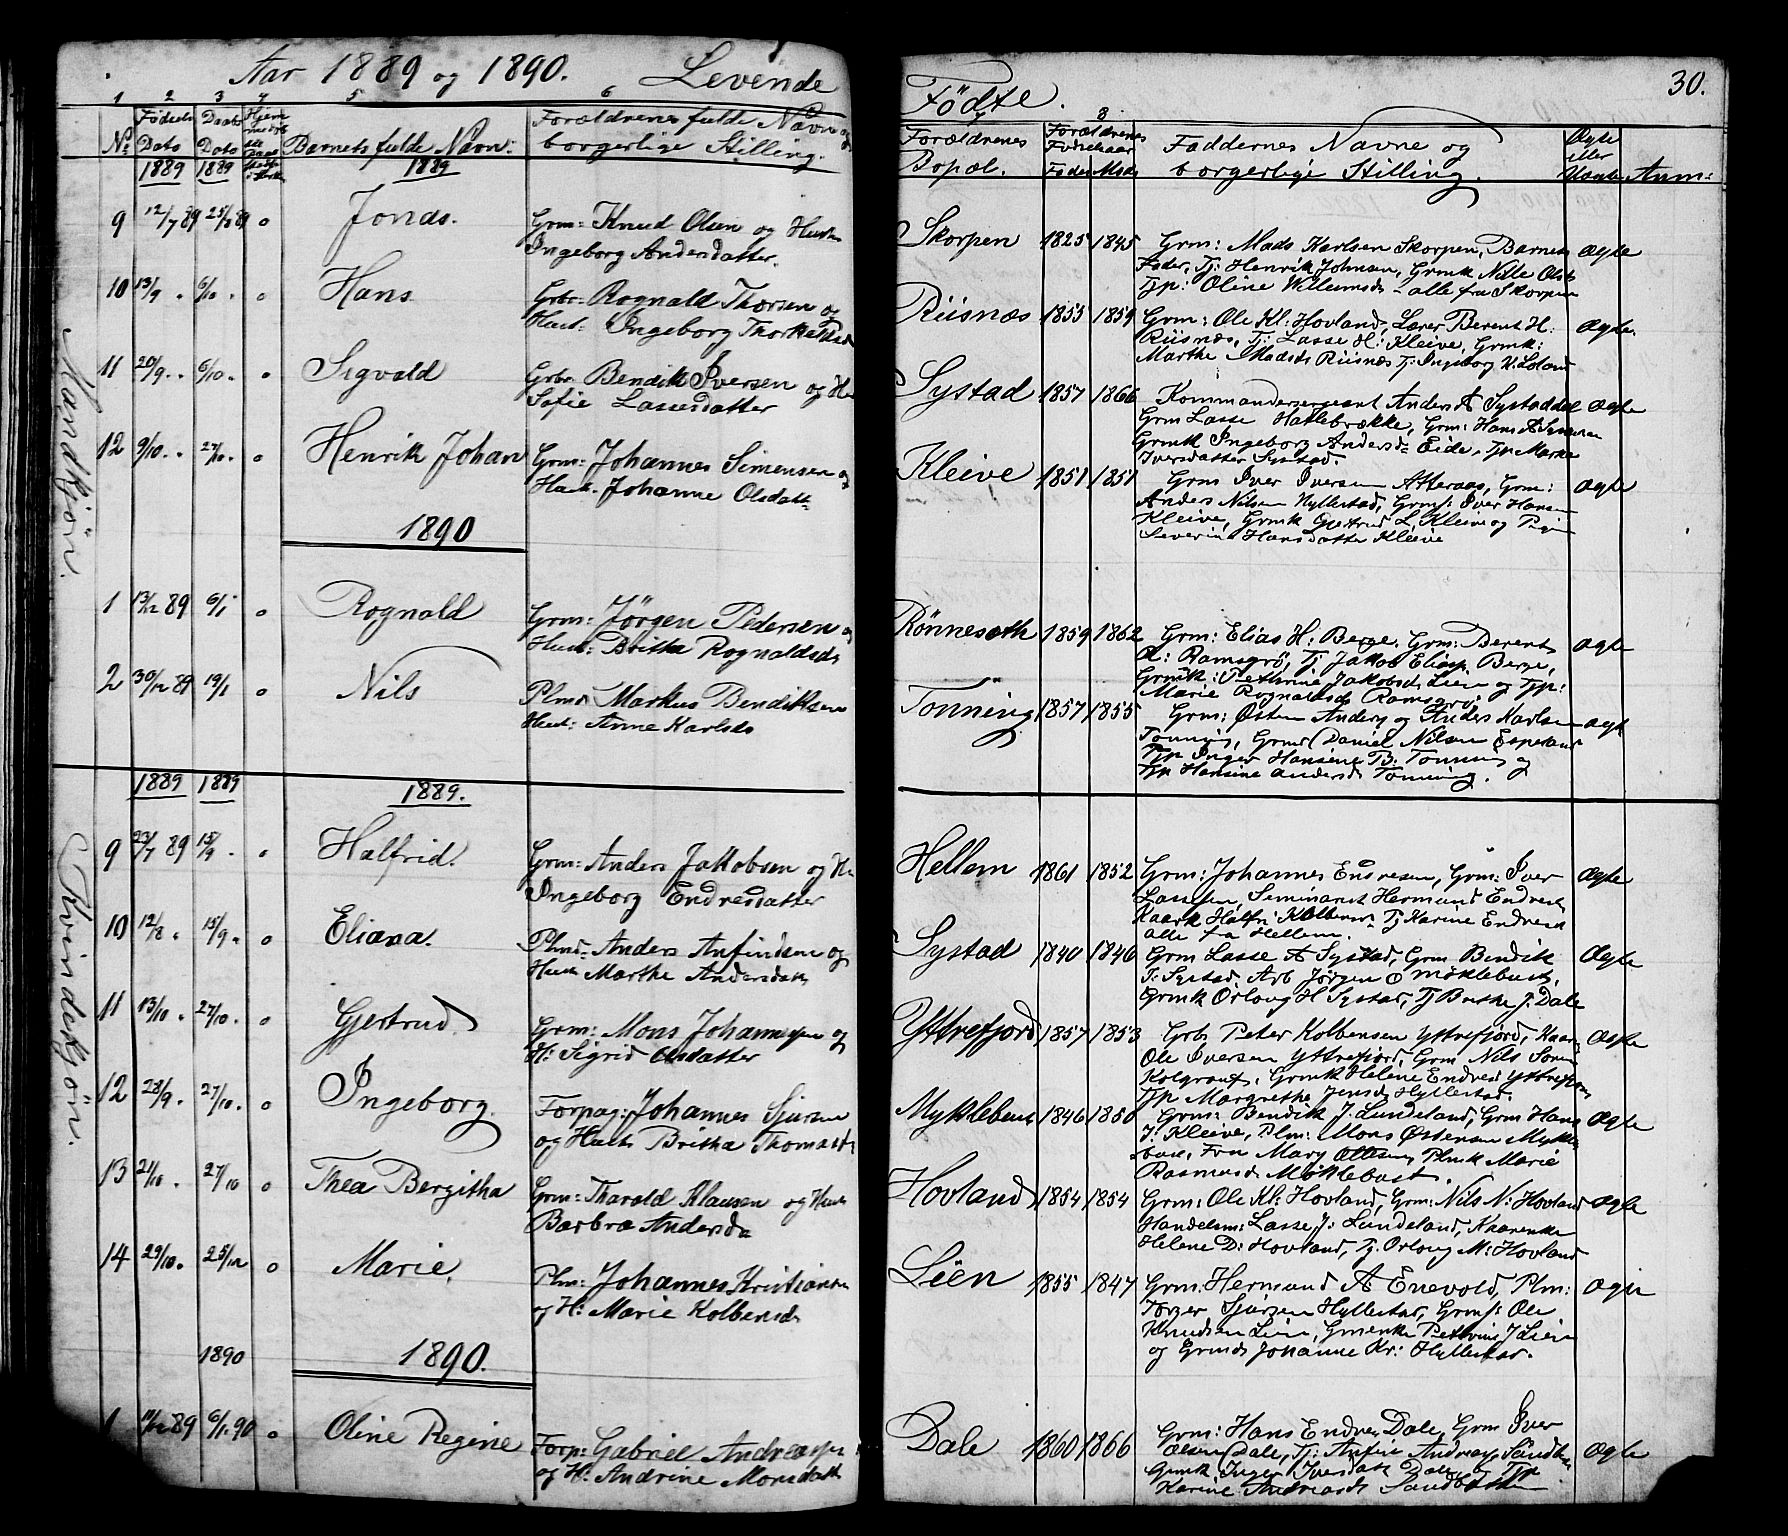 Aar 1889 og 1890. Levende
1 2 3 4 5 6
No Fødsels Dato Daabs Dato Barnets fulde Navn: Forældrenes fulde Navn og
borgerlige Stilling.
1889 1889 1889
Mandkjön.
9 12/7 89 25/8 89 0 Jonas. Grm: Knud Olsen og Hust
Ingeborg Andersdatter.
10 13/9 . 6/10 . 0 Hans Grbr: Rognald Thorsen og
Hust: Ingeborg
11 20/9 . . 6/10 . 0 Sigvald Grbr Bendik Iversen og H:
Sofie Lassesdatter
12 9/10 . . 27/10 . 0 Henrik Johan Grm: Johannes Simensen og
Hust. Johanne Olsdatt
1890
1 13/12 89 6/1 0 Rognald Grm: Jörgen Pedersen og
Hust: Britha Rognaldsd
2 30/12 89 19/1 0 Nils Plmd Markus Bendiksen
Hust: Anne Karlsd
1889 1889 1889.
Kvindekjön.
9 23/7 89 15/9 . 0 Halfrid. Grm: Anders Jakobsen og H:
Ingeborg Endresdatter
10 12/8 . 15/9 . 0 Eliana. Plmd: Anders Anfindsen og
Hust Marthe Andersdatt
11 13/10 . 27/10 . 0 Gjertrud. Grm: Mons Johannesen og
H: Sigrid Olsdatter
12 23/9 . 27/10 . 0 Ingeborg. Forpag: Johannes Sjursen
og Hust Britha Thomasd
13 21/10 . 27/10 0 Thea Bergitha Grm: Tharald Klausen og Hust
Barbra Andersda
14 29/10 . 25/12 0 Marie. Plm: Johannes Kristiansen
og H: Marie Kolbensd
1890 1890.
1 11/12 89 6/1 90 0 Oline Regine Forp: Gabriel Andreasen
og H: Andrine Monsdatt
Födte. 30.
8
Forældrenes
Bopæl. Forældrenes Fødselsaar Fader Mod Faddernes Navne og
borgerlige Stilling. Ægte eller Uægte Anm:
Skorpen 1825 1845 Grm: Mads Karlsen Skorpen, Barnets Ægte
Fader, Tj: Henrik Johnsen, Grmk Nille Olsd
Tjp: Oline Willumsd alle fra Skorpen
Riisnæs 1855 1859 Grm: Ole Kl: Hovland, Lærer Berent H: Ægte.
Riisnæs, Tj: Lasse H: Kleive, Grmk:
Marthe Madsd Riisnæs Tj: Ingeborg
Systad 1857 1866 Kommandersergeant Anders A Systaddal Ægte
Grm Lasse Hatlebrække, Grm: Hans A
Grmk Ingeborg Andersd Eide, Tjp Marthe
Iversdatter Systad.
Kleive 1851 1851 Grm Iver Iversen Atteraas, Grm: Ægte
Anders Nilsen Hyllestad, Grmf: Iver Hansen
Kleive, Grmk Gjertrud L. Kleive og Pige
Severine Hansdatter Kleive
Rönneseth 1859 1862 Grm: Elias H: Berge. Grm: Berent Ægte
Ramsgrö, Tj. Jakob Eliasn Berge,
Grmk: Pethrine Jakobsd Leien og Tjp:
Marie Rognaldsd Ramsgrö,
Tonning 1857 1855 Grm: Østen Anders og Anders Karlsen Ægt
Tonning, Grmd Daniel Nilsen Espeland
Tjp Inger Hansine B: Tonning og
Tjp Hansine Andersd Tonning.
Hellem 1861 1852 Grm: Johannes Endresen, Grm: Iver Ægte
Lassesen, Seminarist Hermund Endresen
Kaark Halfri Kolbensd Tj Karine Endresd
alle fra Hellem.
Systad 1840 1846 Grm Lasse A Systad, Grm Bendik Ægte
T: Systad, Arb Jörgen O Möklebust,
Grmk Orloug H Systad, Tj J. Dale
Yttrefjord 1857 1853 Grbr Peter Kolbensen Yttrefjord, Kaar Ægte
Ole Iversen Yttrefjord, Grm Nils
Grmk Helene Endresd Yttrefjord
Tjp Margrethe Jensd Hyllestad.
Myklebust 1846 1850 Grm: Bendik J. Lundeland, Grm Hans Ægte
J: Kleive, Plm: Mons Østensen Mykle
bust, Fru Mary Plmk Marie
Rasmusd Möklebust.
Hovland 1854 1854 Grm: Ole Kl: Hovland, Grm: Nils N: Hovland Ægte
Handelsm: Lasse J: Lundeland, Kaarenke
Helene D: Hovland, Tj. Orloug M: Hovland
Leen 1855 1847 Grm: Hermund A Enevold, Plm: Ægte
Torger Sjursen Hyllestad, Grmf: Ole
Knudsen Leen, Gmenke Pethrine J Leen
og Grmd Johanne Kr: Hyllestad.
Dale 1860 1866 Grm: Hans Endres Dale, Grm Iver Ægte
Olsen Dale, Tj:
Gmk Inger Iversdatt Dale og Tjp
Karine Andreasd